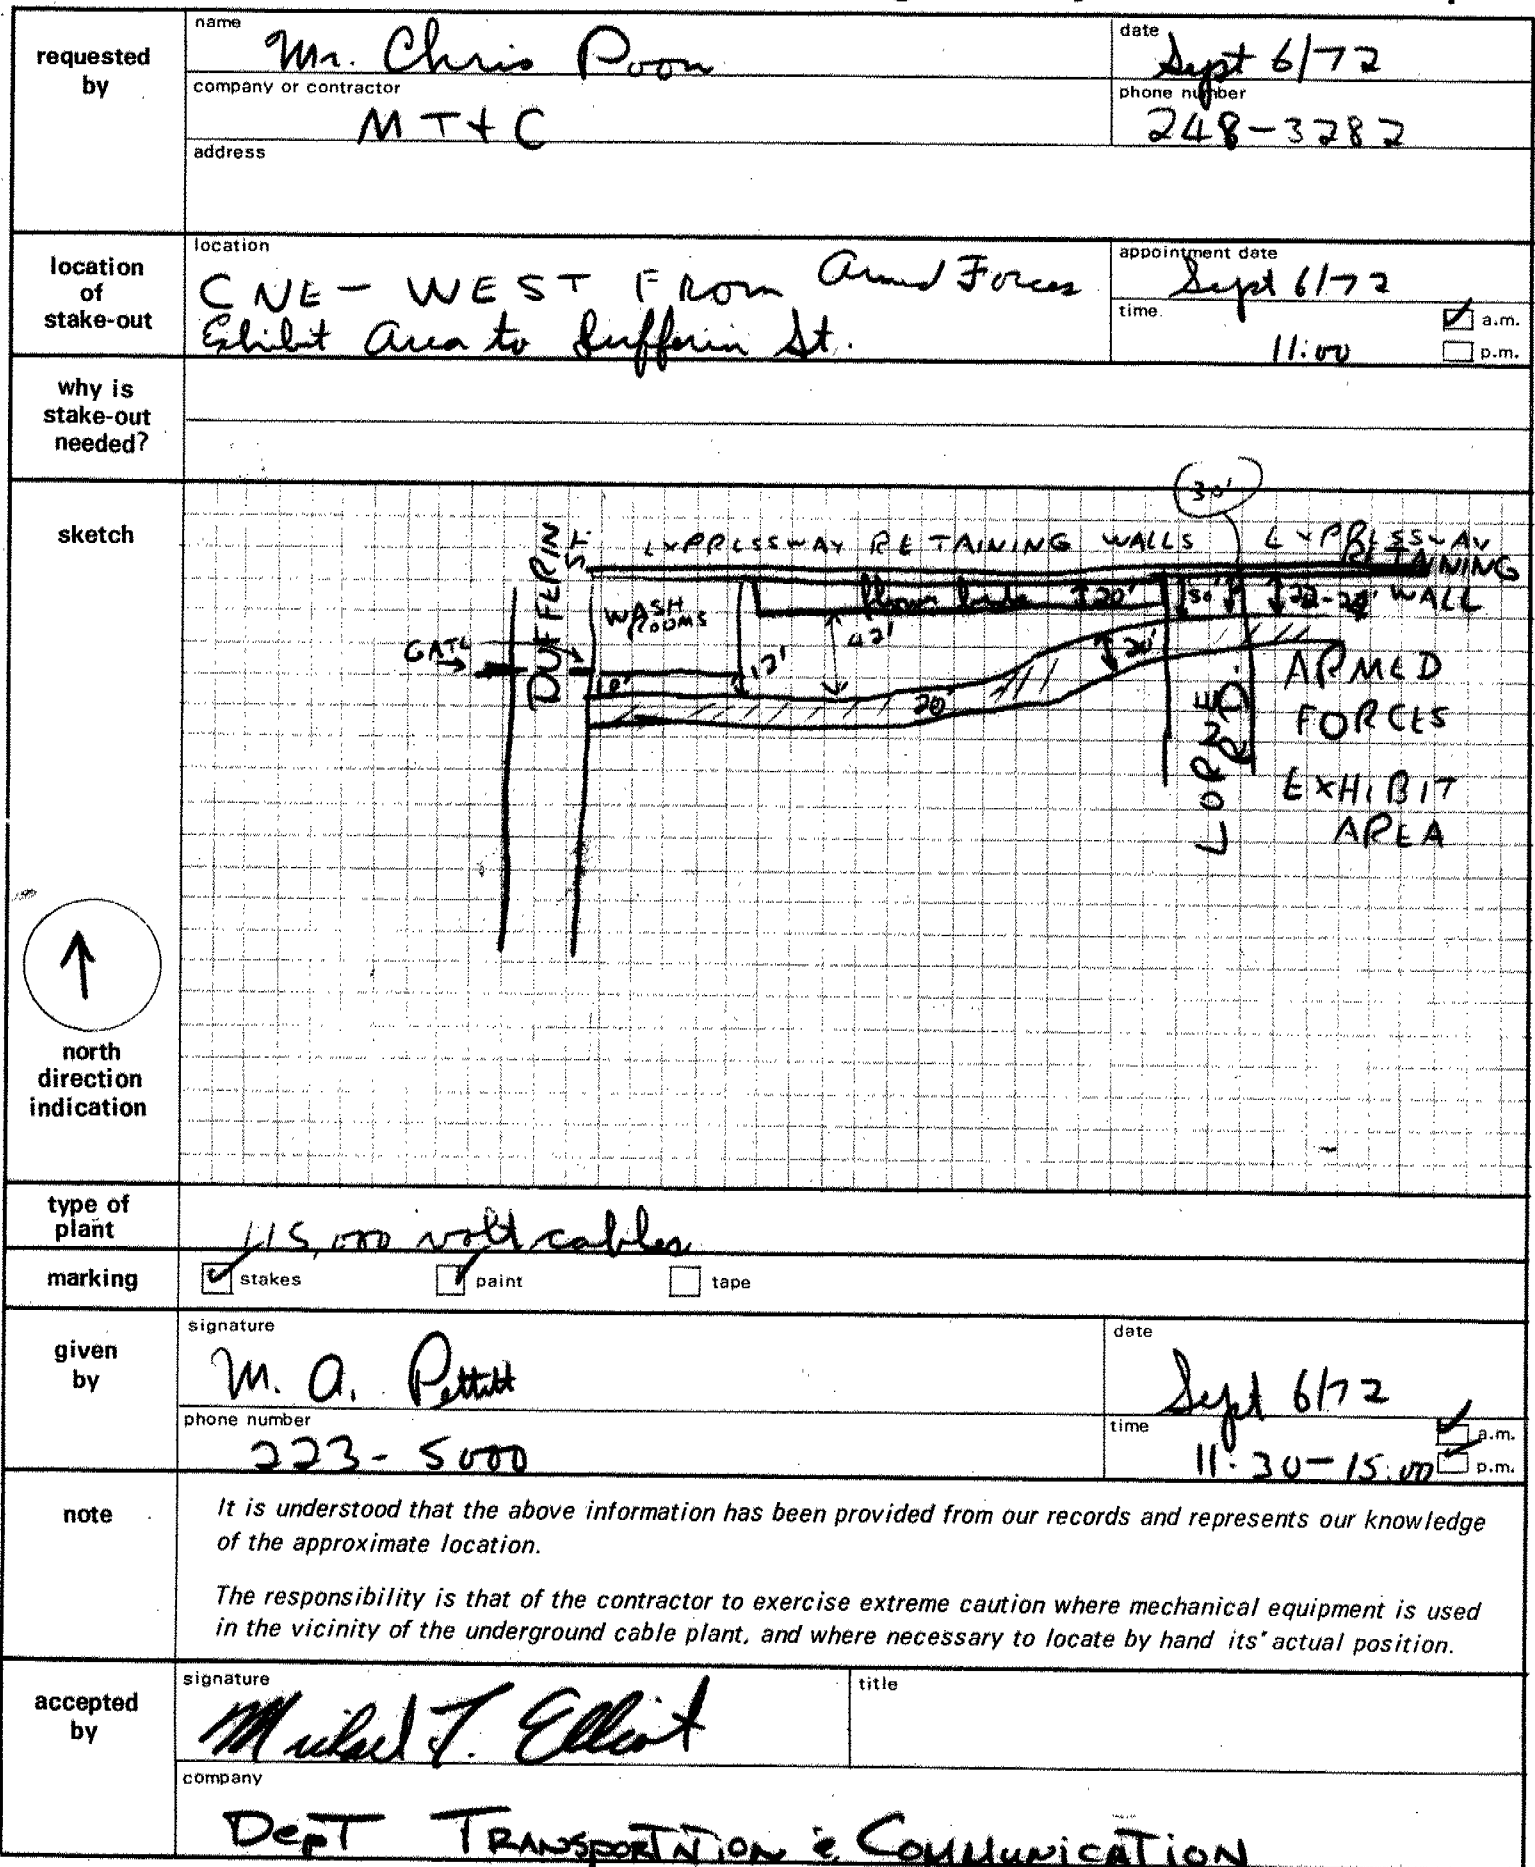 name
date
requested
by
Mr. Chris Poon
Sept 6/72
company or contractor
phone number
MT+C
248-3282
address
location
appointment date
location
of
stake-out
CNE - WEST FROM Armed Forces
Exhibit Area to Dufferin St.
Sept 6/72
time
a.m.
11:00
p.m.
why is
stake-out
needed?
sketch
30'
DUFFERIN
ST.
EXPRESSWAY RETAINING WALLS
EXPRESSWAY
RETAINING
WALL
WASH
ROOMS
20'
GATE
42'
12'
20'
10'
20'
LORNE
RD.
ARMED
FORCES
EXHIBIT
AREA
north
direction
indication
type of
plant
115,000 volt cables
marking
stakes
paint
tape
given
by
signature
date
M. A. Pettitt
Sept 6/72
phone number
time
a.m.
223-5000
11:30-15:00
p.m.
note
It is understood that the above information has been provided from our records and represents our knowledge
of the approximate location.
The responsibility is that of the contractor to exercise extreme caution where mechanical equipment is used
in the vicinity of the underground cable plant, and where necessary to locate by hand its' actual position.
accepted
by
signature
title
Michael T. Elliot
company
DepT TRANSPORTATION & COMMUNICATION